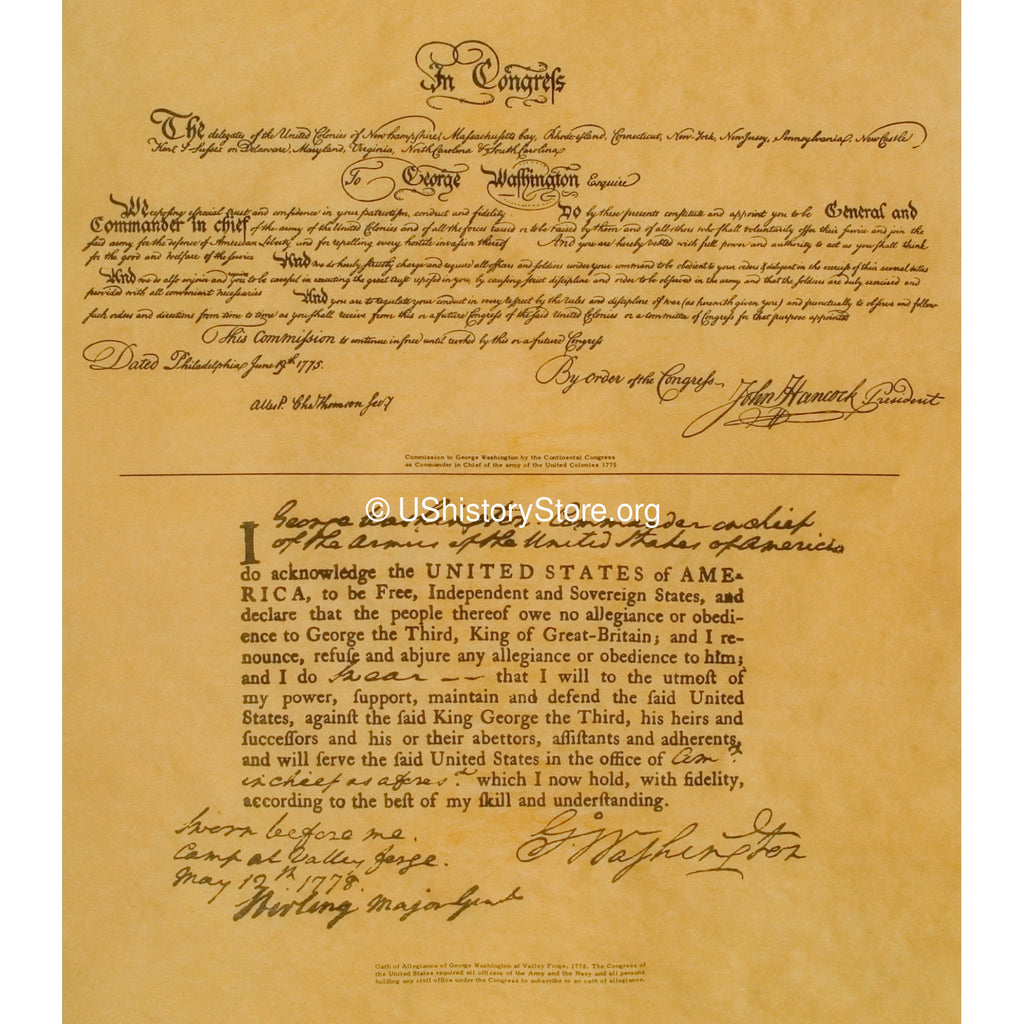 In Congreſs
The delegates of the United Colonies of New hampſhire, Maſsachusetts bay, Rhode iſland, Connecticut, New-York, New Jersey, Pennsylvania, New Castle
Kent & Suſsex on Delaware, Maryland, Virginia, North Carolina & South Carolina
To George Waſhington Esquire
We reposing eſpecial trust and confidence in your patriotiſm, conduct and fidelity Do by theſe presents constitute and appoint you to be General and
Commander in chief of the army of the United Colonies and of all the forces raised or to be raised by them and of all others who ſhall voluntarily offer their ſervice and join the
ſaid army for the defence of American Liberty and for repelling every hostile invaſion thereof And you are hereby vested with full power and authority to act as you ſhall think
for the good and welfare of the ſervice And we do hereby ſtrictly charge and require all officers and ſoldiers under your command to be obedient to your orders & diligent in the exercise of their ſeveral duties
And we do alſo enjoin and require you to be careful in executing the great trust repoſed in you, by cauſing ſtrict diſcipline and order to be obſerved in the army and that the ſoldiers are duly exercised and
provided with all convenient neceſsaries And you are to regulate your conduct in every reſpect by the rules and diſcipline of war (as herewith given you) and punctually to obſerve and follow
ſuch orders and directions from time to time as you ſhall receive from this or a future Congreſs of the ſaid United Colonies or a committee of Congreſs for that purpose appointed
This Commiſsion to continue in force until revoked by this or a future Congreſs
Dated Philadelphia June 19th 1775.
By order of the Congreſs
John Hancock President
Attest. Cha Thomson Secy
Commission to George Washington by the Continental Congress
as Commander in Chief of the army of the United Colonies 1775
© UShistoryStore.org
I George Washington Commander in chief
of the Armies of the United States of America
do acknowledge the UNITED STATES of AME-
RICA, to be Free, Independent and Sovereign States, and
declare that the people thereof owe no allegiance or obedi-
ence to George the Third, King of Great-Britain; and I re-
nounce, refuſe and abjure any allegiance or obedience to him;
and I do Swear —— that I will to the utmoſt of
my power, ſupport, maintain and defend the ſaid United
States, againſt the ſaid King George the Third, his heirs and
ſucceſſors and his or their abettors, aſſiſtants and adherents,
and will ſerve the ſaid United States in the office of Com.r
in chief as aforesd. which I now hold, with fidelity,
according to the beſt of my ſkill and underſtanding.
Sworn before me.
Camp at Valley forge.
May 12th. 1778.
Stirling Major Genl
Go Waſhington
Oath of Allegiance of George Washington at Valley Forge, 1778. The Congress of
the United States required all officers of the Army and the Navy and all persons
holding any civil office under the Congress to subscribe to an oath of allegiance.